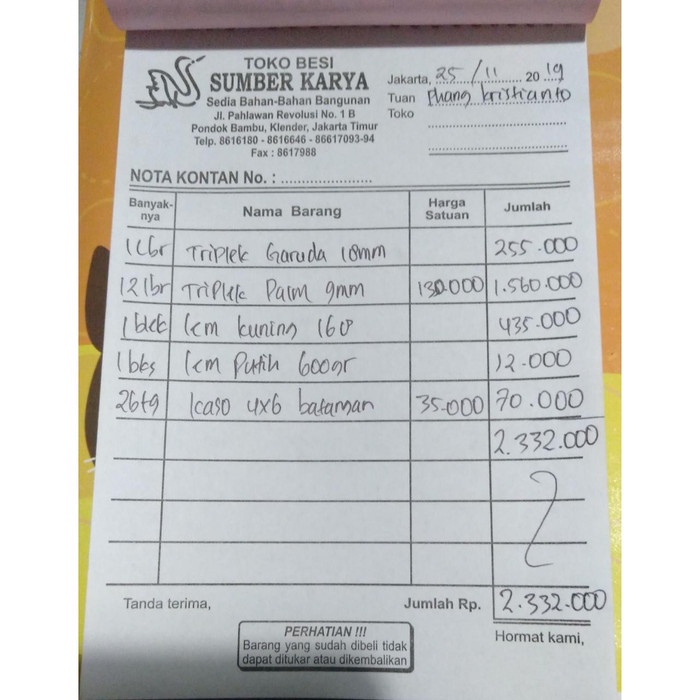 TOKO BESI
SUMBER KARYA
Sedia Bahan-Bahan Bangunan
Jl. Pahlawan Revolusi No. 1 B
Pondok Bambu, Klender, Jakarta Timur
Telp. 8616180 - 8616646 - 86617093-94
Fax : 8617988
Jakarta, 25 / 11 2019
Tuan Phang kristianto
Toko
NOTA KONTAN No. :
Banyak-nya Nama Barang Harga Satuan Jumlah
1 Lbr Triplek Garuda 18mm 255.000
12 lbr Triplek Palm 9mm 130.000 1.560.000
1 blek lem kuning 435.000
1 bks lem Putih 600gr 12.000
kaso 4x6 35.000 70.000
2.332.000
Tanda terima, Jumlah Rp. 2.332.000
PERHATIAN !!!
Barang yang sudah dibeli tidak
dapat ditukar atau dikembalikan
Hormat kami,